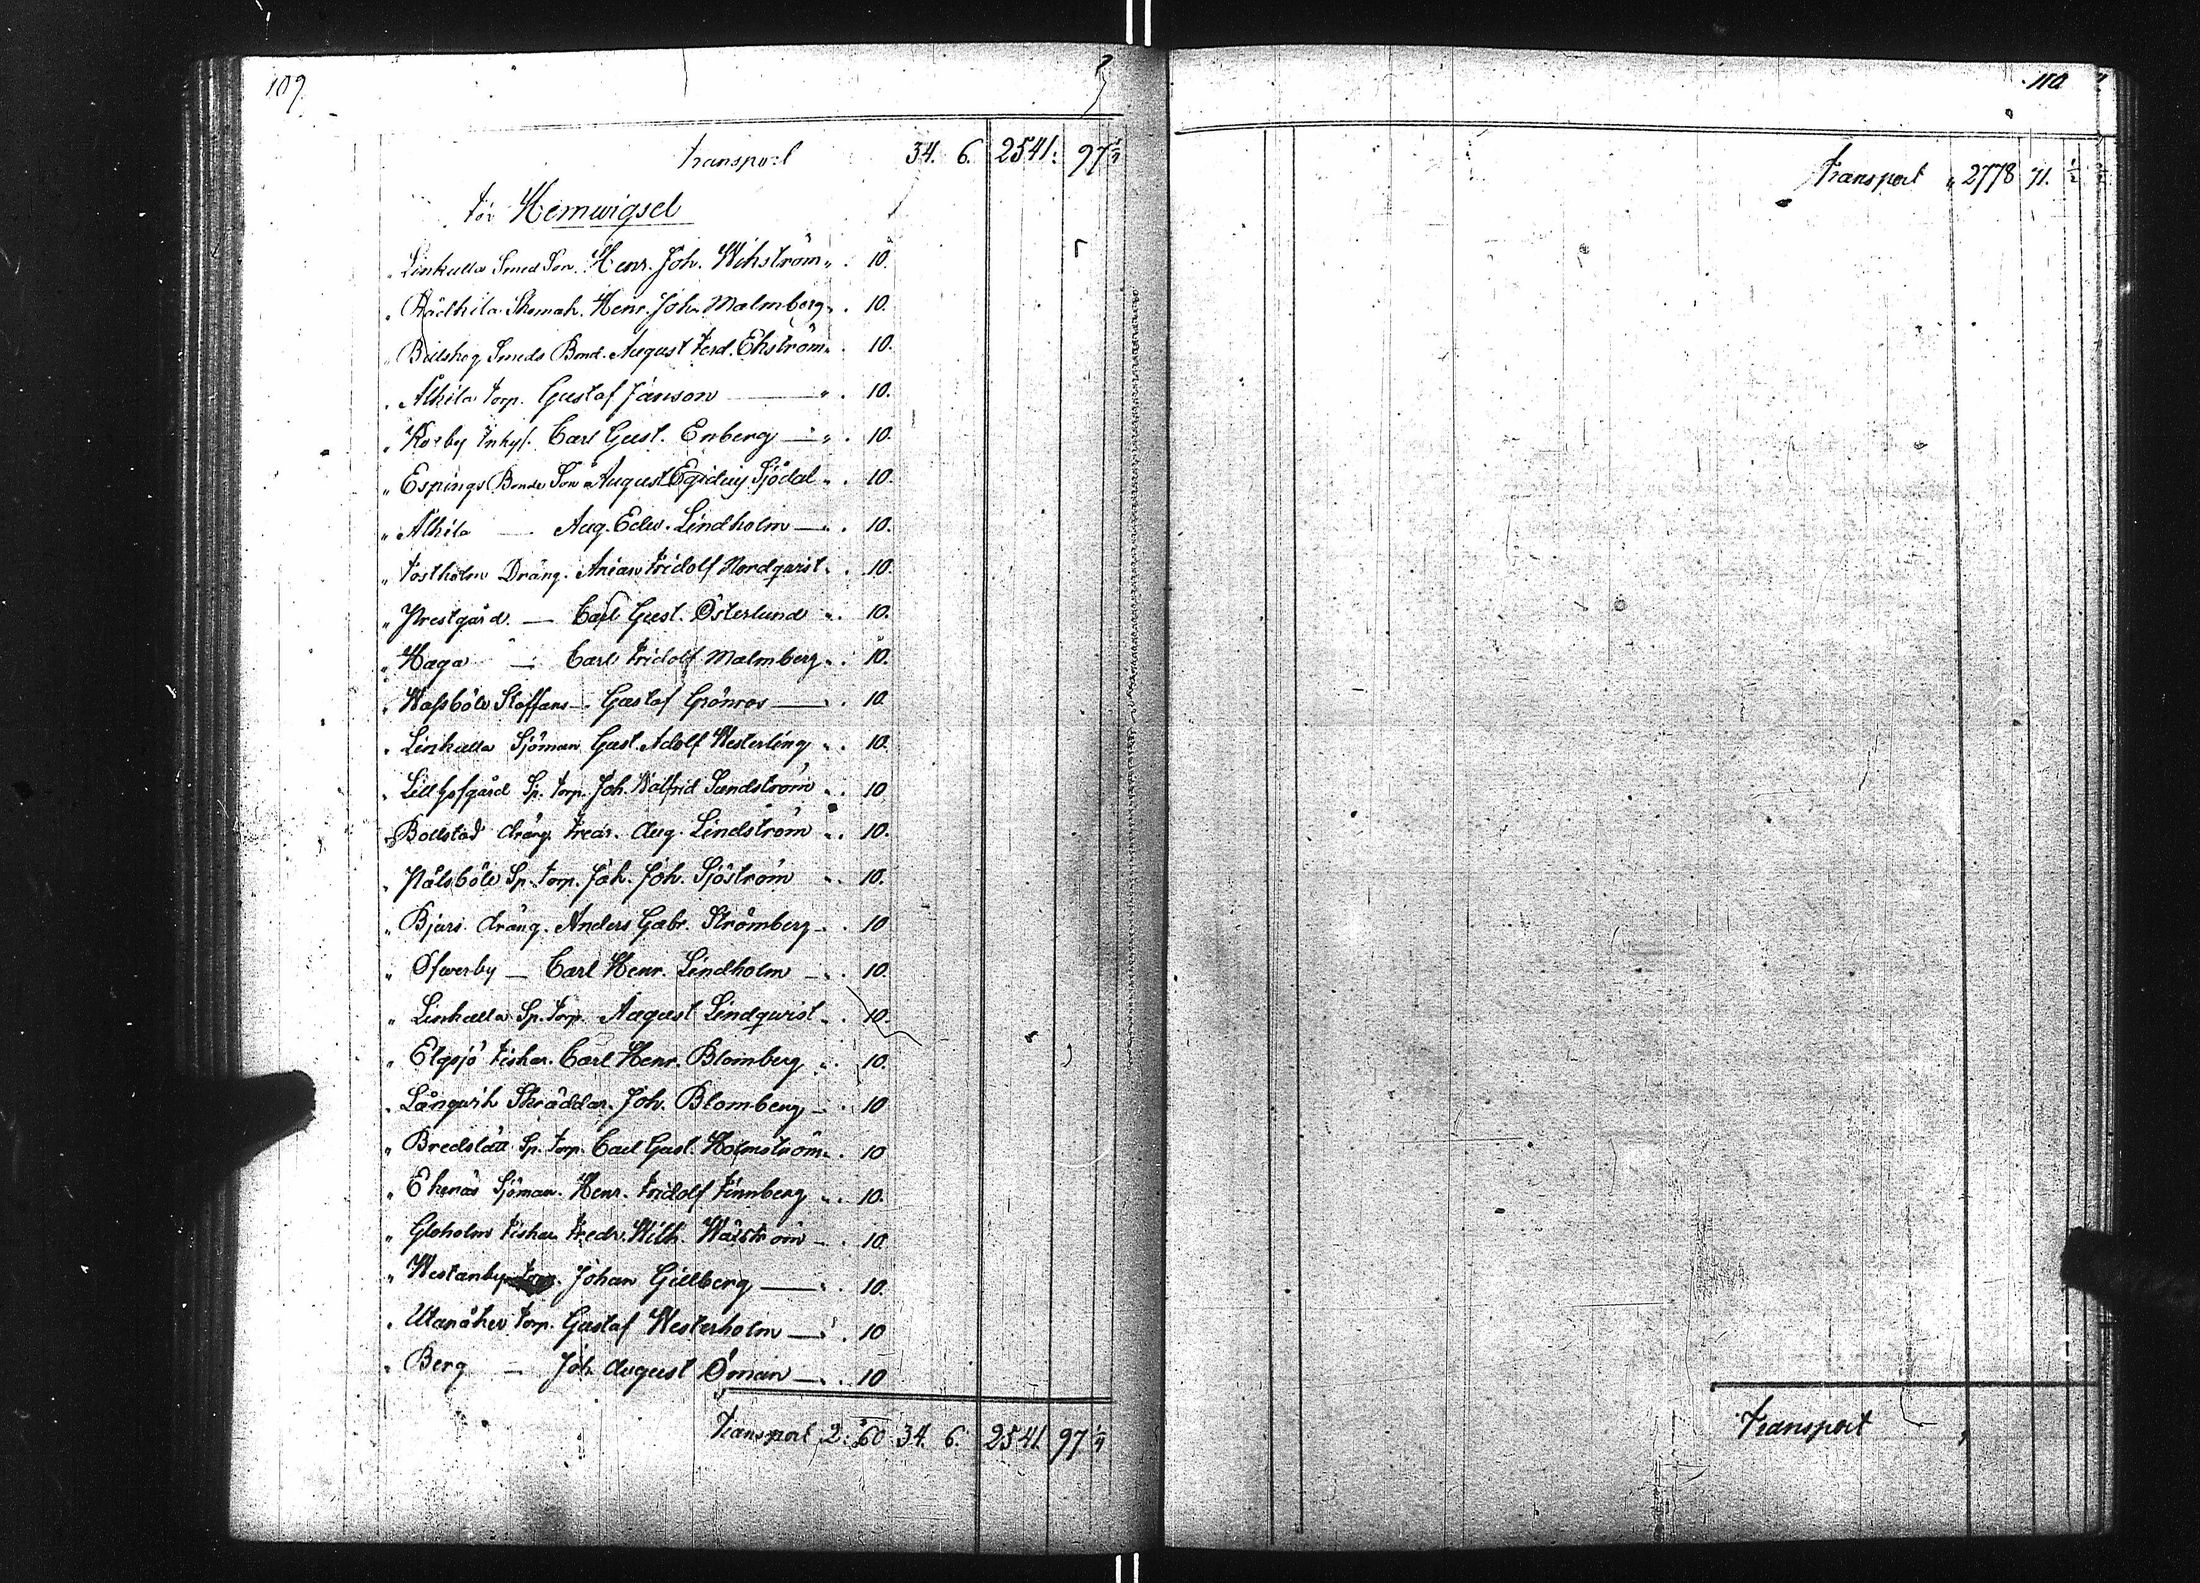 109
Transport 34. 6. 2541: 97 1/4
för Hemwigsel
" Linkulla Smed Son. Henr. Joh. Wikström " . 10.
" Rådkila Skomak. Henr. Joh. Malmberg " . 10.
" Böleskog Smeds Bond. August Ferd. Ekström " . 10.
" Alkila torp. Gustaf Janson — " . 10.
" Korby Inhys. Carl Gust. Enberg — " . 10.
" Espings Bonde Son August Egidius Sjödal " . 10.
" Alkila — Aug. Edw. Lindholm — " . 10.
" Tostholm Dräng. Arian Fridolf Nordqwist " . 10.
" Prestgård. — Carl Gust. Österlund " . 10.
" Haga — Carl Fridolf Malmberg " . 10.
" Wassböle Staffans — Gustaf Grönros — " . 10
" Linkulla Sjöman Gust. Adolf Westerling " . 10.
" Lillhofgård Sp. torp. Joh. Walfrid Sundström " . 10
" Bollstad dräng. Fredr. Aug. Lindström " . 10.
" Pålsböle Sp. torp. Joh. Joh. Sjöström " . 10.
" Bjars dräng. Anders Gabr. Strömberg — . 10
" Öfwerby — Carl Henr. Lindholm — " . 10.
" Linkulla Sp. torp. August Lindqwist " . 10.
" Elgsjö Fiskar. Carl Henr. Blomberg " . 10.
" Långwik Skräddar. Joh. Blomberg — " . 10
" Bredslätt Sp. torp. Carl Gust. Holmström " . 10
" Ekenäs Sjöman. Henr. Fridolf Finnberg " . 10.
" Gloholm Fiskar Fredr. Wilh. Wåström — . 10
" Westanby torp. Johan Gillberg — " . 10.
" Utanåker torp. Gustaf Westerholm — " . 10
" Berg — Joh August Öman — " . 10
Transport 2. 60 34. 6. 2541 97 1/4
110
Transport " 2778 71. 1/2
Transport